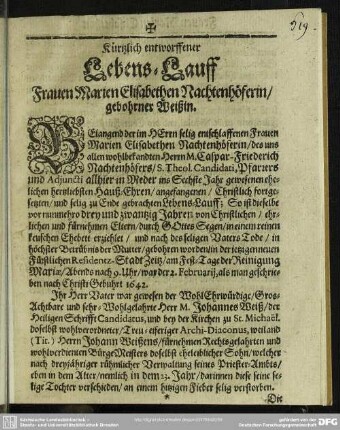 319.
Kürtzlich entworffener
Lebens-Lauff
Frauen Marien Elisabethen Nachtenhöferin/
gebohrner Weißin.
BElangend der im HErrn selig entschlaffenen Frauen
Marien Elisabethen Nachtenhöferin/ des uns
allen wohlbekandten Herrn M. Caspar-Friederich
Nachtenhöfers/ S. Theol. Candidati, Pfarrers
und Adjuncti allhier in Meder ins Sechste Jahr gewesenen ehe-
lichen hertzliebsten Hauß-Ehren/ angefangenen/ Christlich fortge-
setzten/ und selig zu Ende gebrachten Lebens-Lauff; So ist dieselbe
vor nunmehro drey und zwantzig Jahren von Christlichen/ ehr-
lichen und fürnehmen Eltern/ durch GOttes Segen/ in einem reinen
keuschen Ehebett erziehlet/ und nach des seligen Vaters Tode/ in
höchster Betrübnis der Mutter/ gebohren worden/ in der jetzigen neuen
Fürstlichen Residentz-Stadt Zeitz/ am Fest-Tage der Reinigung
Maria/ Abends nach 9. Uhr/ war der 2. Februarii, als man geschrie-
ben nach Christi Gebuhrt 1642.
Ihr Herr Vater war gewesen der WohlEhrwürdige/ Groß-
Achtbare und sehr Wohlgelahrte Herr M. Johannes Weiß/ der
Heiligen Schrifft Candidatus, und bey der Kirchen zu St. Michael.
doselbst wohlverordneter/ Treu-eiferiger Archi-Diaconus, weiland
(Tit.) Herrn Johann Weißens/ fürnehmen Rechtsgelahrten und
wohlverdienten BürgeMeisters doselbst eheleiblicher Sohn/ welcher
nach dreyjähriger rühmlicher Verwaltung seines Priester-Ambts/
eben in dem Alter/ nemlich in dem 23. Jahr/ darinnen diese seine se-
lige Tochter verschieden/ an einem hitzigen Fieber selig verstorben.
Die